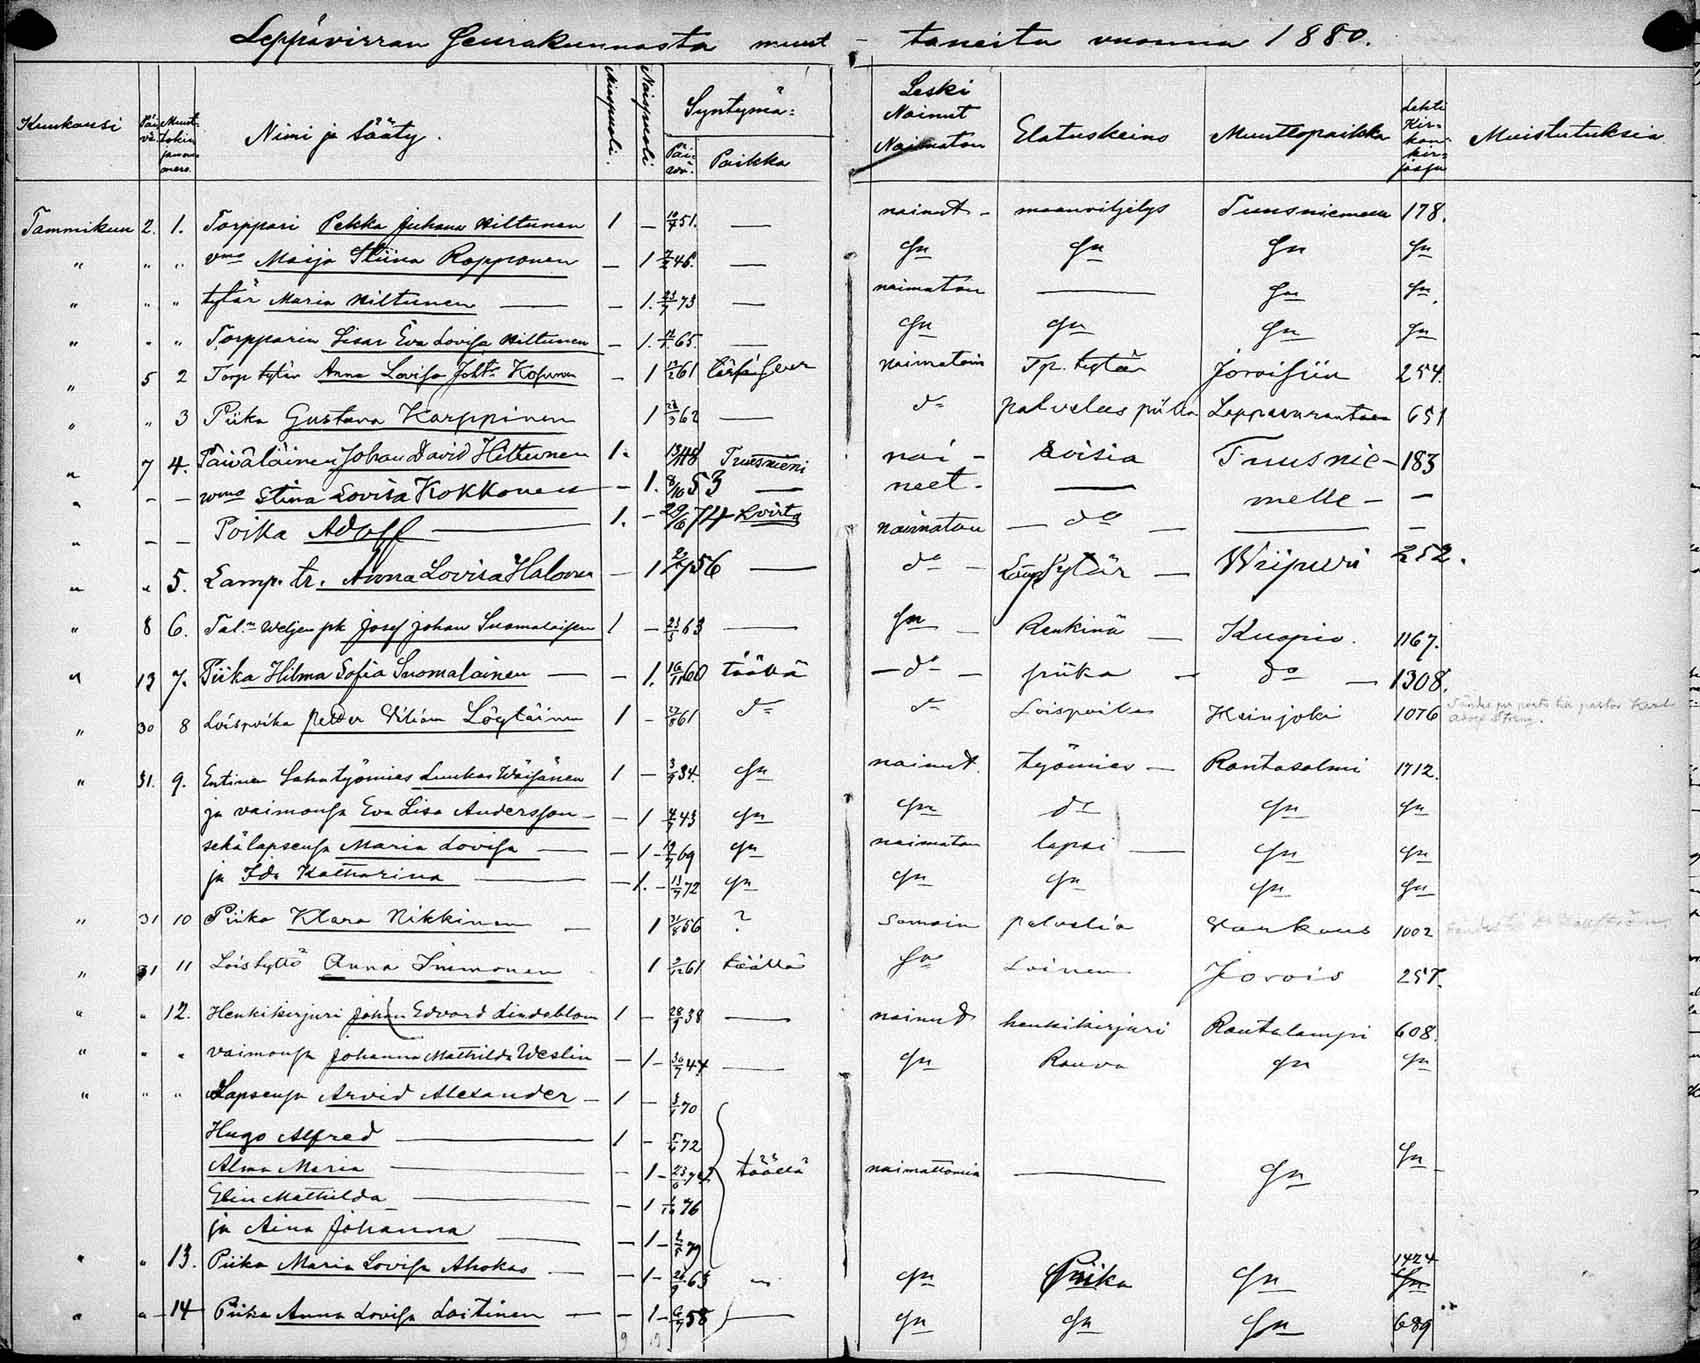 Leppävirran Seurakunnasta muut- taneita vuonna 1880.
Kuukausi Päivä Muuttokirjan numero Nimi ja Sääty. Miespuoli. Naispuoli Syntymä: Päivä Paikka Leski Nainut Naimaton Elatuskeino Muuttopaikka Lehti Kirkonkirjassa Muistutuksia
Tammikuu 2. 1. Torppari Pekka Juhana Hiltunen 1 — 51. — nainut — maanviljelys Tuusniemeen 178.
" " " vmo Maija Stiina Ropponen — 1 46. — Sn Sn Sn Sn
" " " tytär Maria Hiltunen — 1. 73 — naimaton — Sn Sn
" " " Torpparin Sisar Eva Lovisa Hiltunen — 1. 65. — Sn Sn Sn Sn
" 5 2 Torp tytär Anna Lovisa Kosunen — 1 61 naimatoin Tp. tytär Joroisiin 254.
" " 3 Piika Gustava Karppinen 1 62 — do palvelus piika Lappeenrantaan 651
" 7 4. Päiväläinen Johan David Hiltunen 1. 48 Tuusniemi nai- Loisia Tuusnie- 183
" - - wmo Stina Lovisa Kokkonen — 1. 8/10 53 — neet. — melle — —
" - - Poika Adolf — 1. — 74 Lvirta naimaton — do — — —
" " 5. Lamp. tr. Anna Lovisa Halonen — 1 56 — do — Tytär — Wiipuri 252.
" 8 6. Tal. Weljen pk Josef Johan Suomalainen 1 — 63 — Sn — Renkinä — Kuopio. 1167.
" 13 7. Piika Hilma Sofia Suomalainen — — 1. 60 täällä — do — piika — do — 1308.
" 30 8 Loispoika Petter Viliam Löytäinen 1 — 61 do do Loispoika Heinjoki 1076
" 31. 9. Entinen Sahatyömies Luukas Wäisänen 1 — 34. Sn nainut. työmies — Rantasalmi 1712.
ja vaimonsa Eva Lisa Andersson — — 1 43 Sn Sn do Sn Sn
sekä lapsensa Maria Lovisa — — 1 — 69 Sn naimaton lapsi — Sn Sn
ja Ida Katharina — — 1. — 72 Sn Sn Sn Sn Sn
" 31 10 Piika Klara Nikkinen — 1 56 ? samoin palvelia Varkaus 1002
" 31 11 Loistyttö Anna Immonen 1 61 täällä Sn Loinen Jorois 257.
" " 12. Henkikirjuri Johan Edvard Lindeblom 1 — 38 — nainut henkikirjuri Rautalampi 608.
" " " vaimonsa Johanna Mathilda Weslin — 1 — 44 — Sn Rouva Sn Sn
" " " Lapsensa Arvid Alexander — 1 — 70
Hugo Alfred — 1 — 72
Alma Maria — — 1 — 74 täällä naimattomia — Sn Sn
Elin Mathilda — — 1 76
ja Aina Johanna — — 1 — 79
" " 13. Piika Maria Lovisa Ahokas — — 1 — 63 " Sn Piika Sn 1424
" " 14 Piika Anna Lovisa Laitinen — — 1 — 58 — Sn Sn Sn 689